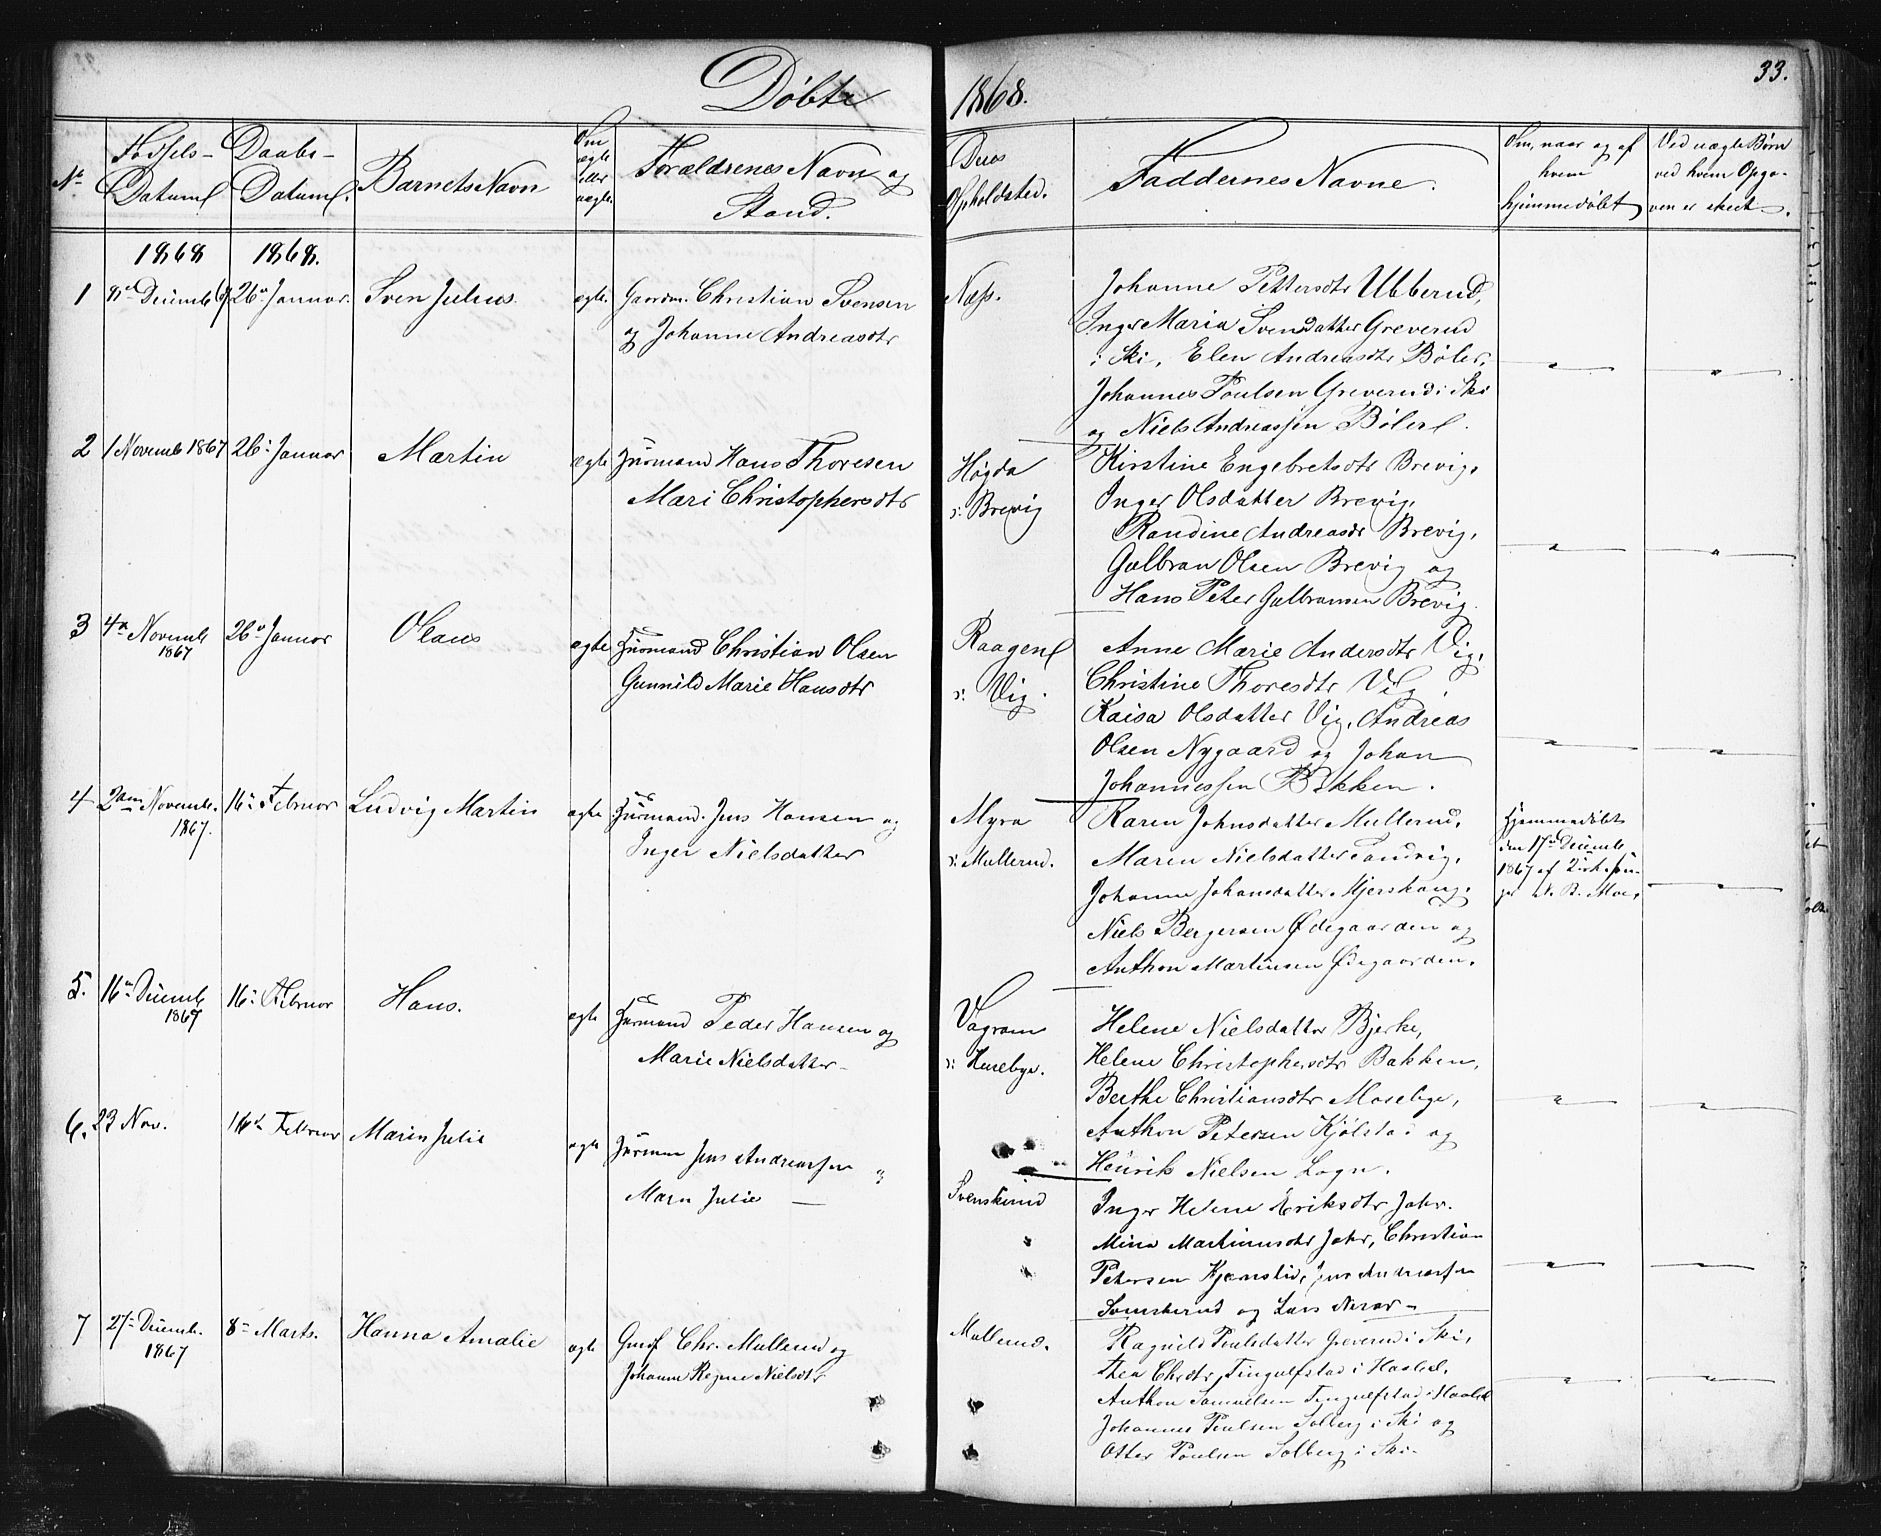 Døbte
1868.
33.
No
Fødsels-
Datum
Daabs-
Datum.
Barnets Navn
Om
ægte
eller
uægte.
Forældrenes Navn og
Stand.
Deres
Opholdsted.
Faddernes Navne.
Om, naar og af
hvem
hjemmedøbt
Ved uægte Børn
ved hvem Opga-
ven er skeet.
1868
1868.
1
Decemb 67
26 Januar.
Sven Julius.
ægte.
Gaardm. Christian Svensen
og Johanne Andreasdtr
Næss.
Johanne Pettersdtr Ubberud,
Inger Maria Svensdatter Greverud
i Ski, Elen Andreasdtr Bøler,
Johannes Poulsen Greverud i Ski
og Niels Andreassen Bøler.
2
1 Novemb 1867
26 Januar
Martin
ægte
Huusmand Hans Thoresen
Mari Christophersdtr
Høgda
u: Brevig
Kirstine Engebretsdtr Brevig,
Inger Olsdatter Brevig,
Randine Andreasdtr Brevig,
Gulbran Olsen Brevig og
Hans Peter Gulbransen Brevig.
3
4de Novemb
1867
26 Januar
Olaus
ægte
Huusmand Christian Olsen
Gunnild Marie Hansdtr
Raagen
u: Vig.
Anne Marie Andersdtr Vig,
Christine Thoresdtr Vig,
Kaisa Olsdatter Vig, Andreas
Olsen Nygaard og Johan
Johannessen Bakken.
4
2den Novemb.
1867.
16 Februar
Ludvig Martin
ægte
Huusmand. Jens Hansen og
Inger Nielsdatter
Myra
u: Mullerud.
Karen Johnsdatter Mullerud,
Maren Nielsdatter Tandvig,
Johanne Johansdatter Mjerskaug,
Niels Bergersen Ødegaarden og
Anthon Martinsen Ødegaarden.
Hjemmedøbt
den 17de Decemb.
1867 af Kirkesan-
ger N. B. Moe,
5.
16 Decemb
1867
16 Februar
Hans.
ægte
Huusmand Peder Hansen og
Marie Nielsdatter
Vagram
u: Huseby.
Helene Nielsdatter Bjerke,
Helene Christophersdtr Bakken,
Berthe Christiansdtr Moseby,
Anthon Petersen Kjølstad og
Henrik Nielsen Logn.
6.
23 Nov.
16de Februar
Maren Julie
ægte
Huusman Jens Andreassen og
Maren Julie
Svenskerud
Inger Helene Eriksdtr Jahr.
Mina Martinusdtr Jahr, Christian
Petersen Kjænstid, Jens Andreassen
Svenskerud og Lars Narar
7
27 Decemb.
1867
8 Marts.
Hanna Amalie
ægte
Chr. Mullerud og
Johanne Regine Nielsdtr
Mullerud.
Ragnild Poulsdatter Greverud i Ski,
Thea Chrdtr Tingulfstad i Haabøl,
Anthon Samuelsen Tingulfstad i Haabøl
Johannes Poulsen Solberg i Ski og
Otter Poulsen Solberg i Ski